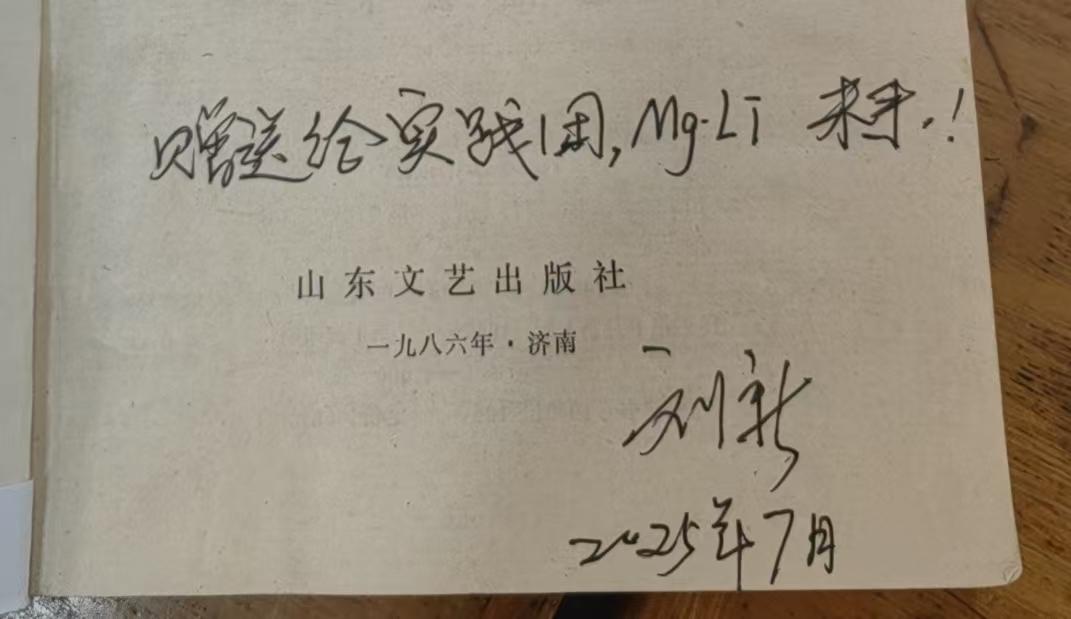 赠送给实践团,Mg-Li 未来.!
山东文艺出版社
一九八六年·济南
刘新
2025年7月